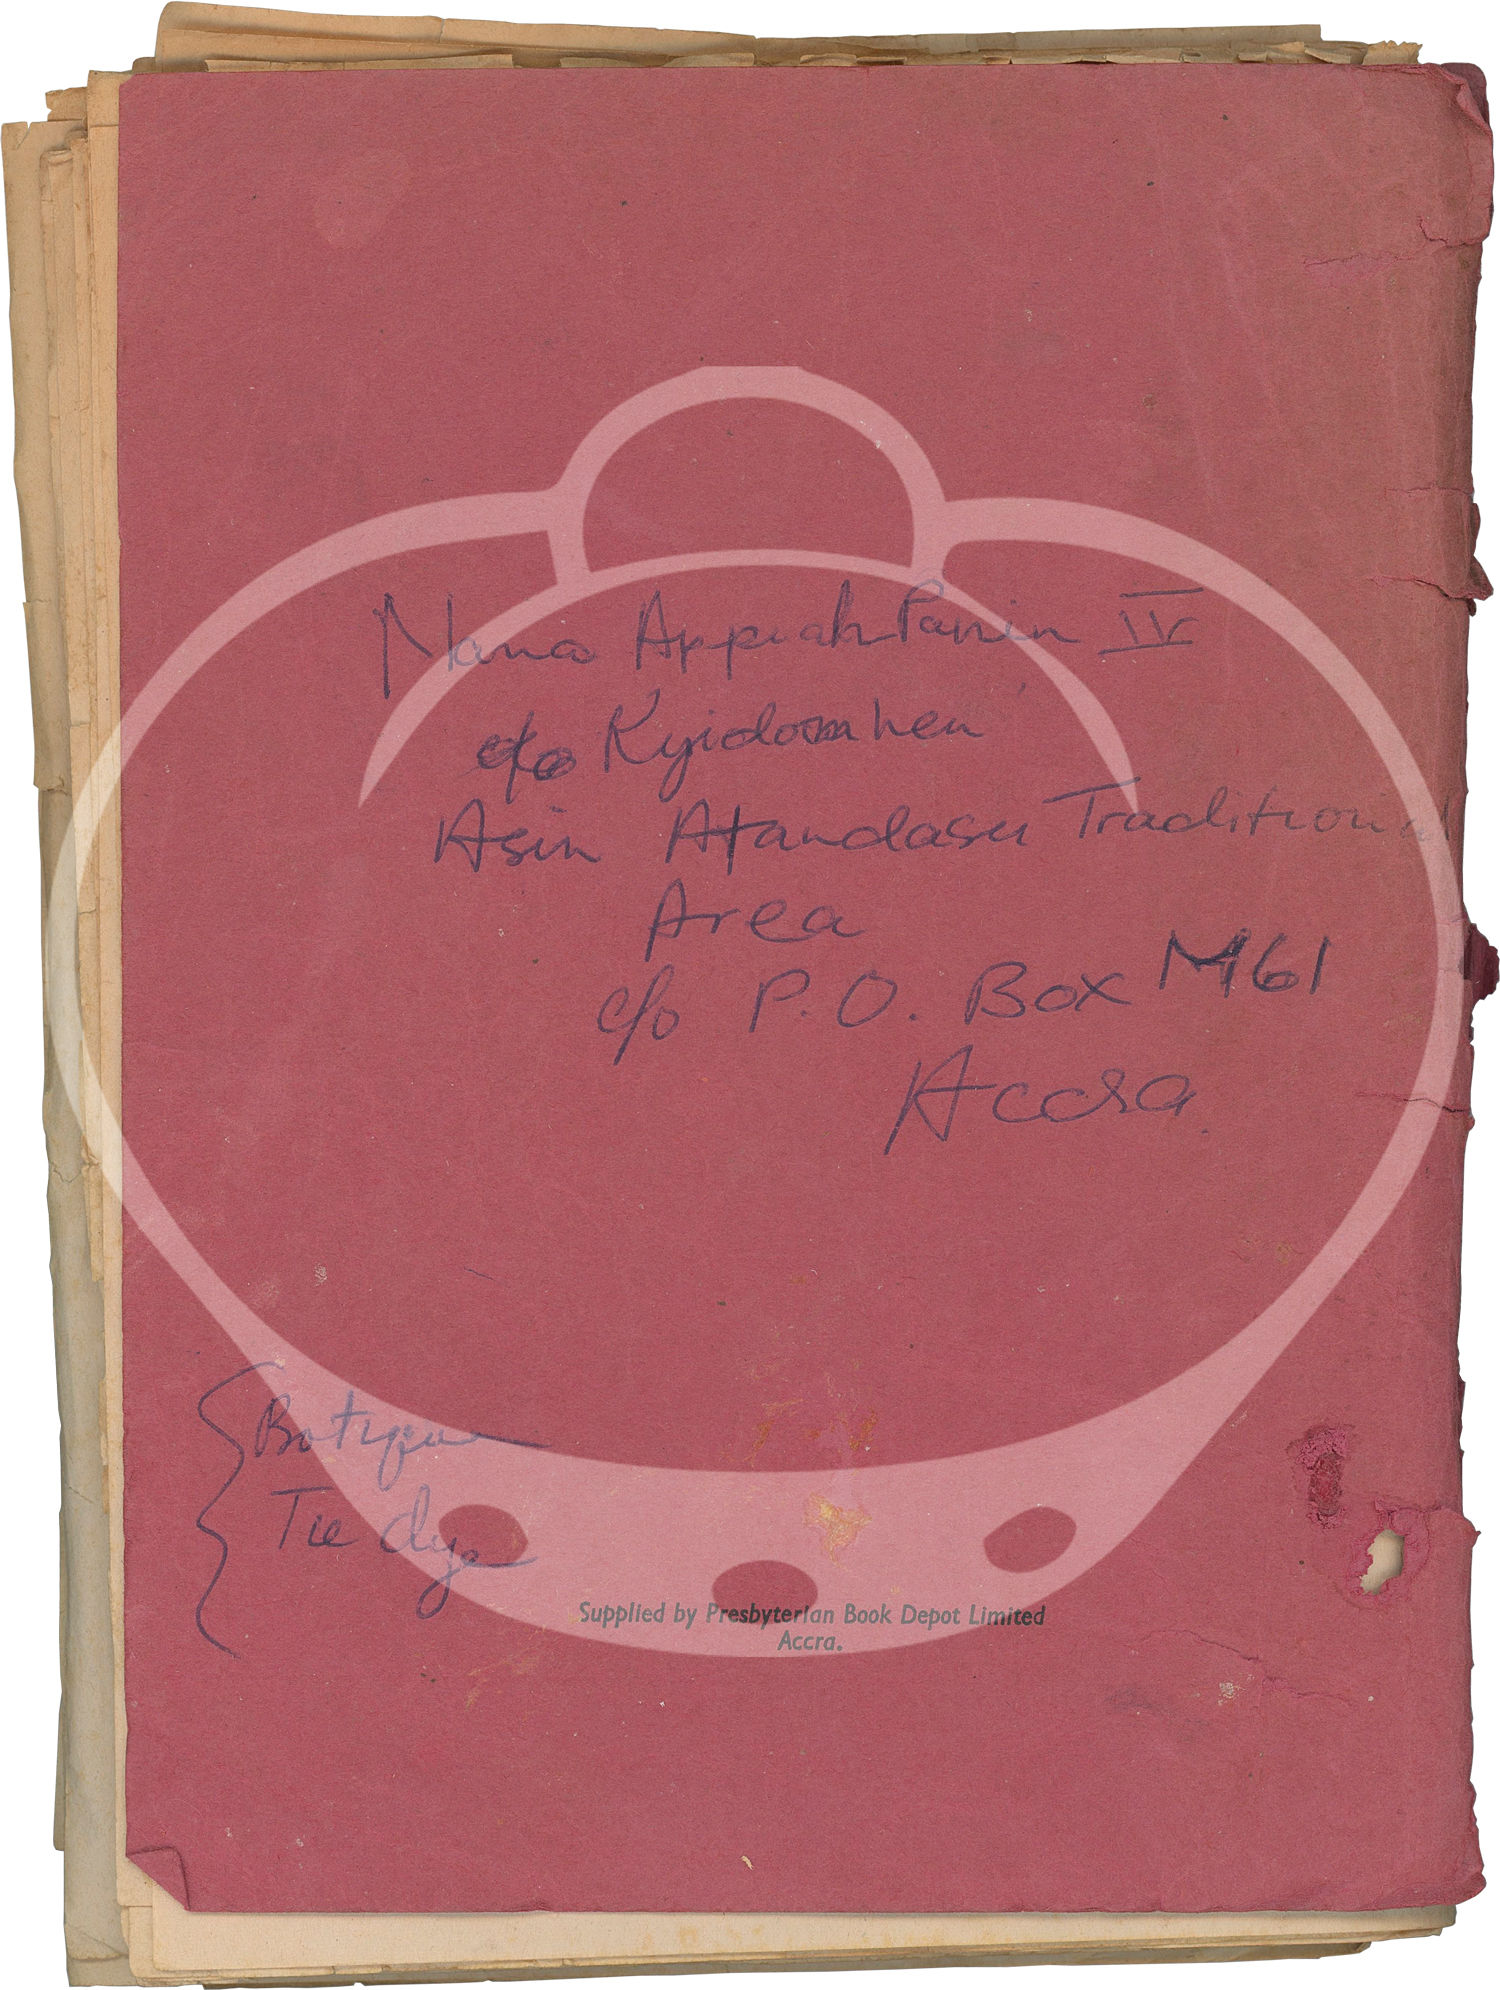 Nana Appiah Panin IV
c/o Kyidomhen
Asin Atandasu Traditional
Area
c/o P.O. Box M61
Accra
Tie dye
Supplied by Presbyterian Book Depot Limited
Accra.